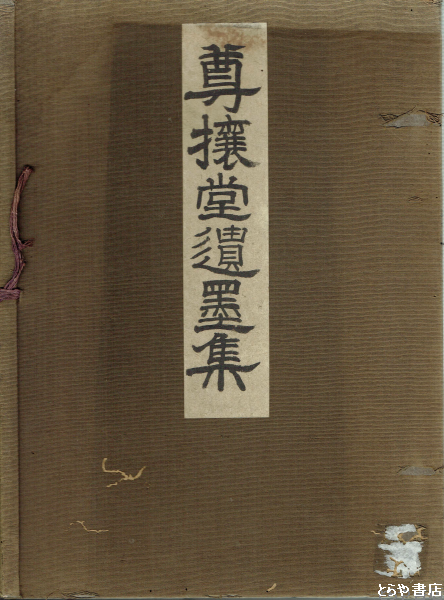 尊攘堂遺墨集
とらや書店